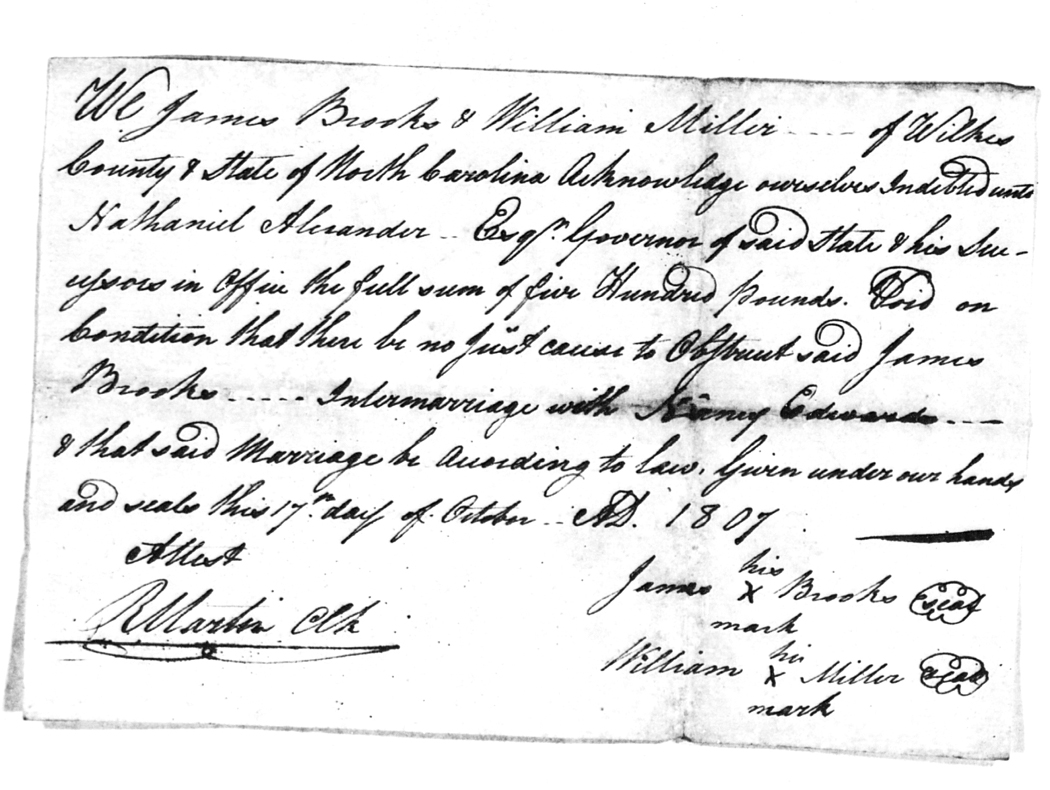 We James Brooks & William Miller ---- of Wilkes
County & State of North Carolina Acknowledge ourselves Indebted unto
Nathaniel Alexander -- Esqr. Governor of said State & his Suc-
cessors in Office the full sum of five Hundred pounds. Void on
Condition that there be no just cause to Obstruct said James
Brooks ----- Intermarriage with Edwards ----
& that said Marriage be according to law. Given under our hands
and seals this 17th day of October -- AD. 1807
Attest
R Martin Clk
his
James X Brooks seal
mark
his
William X Miller seal
mark